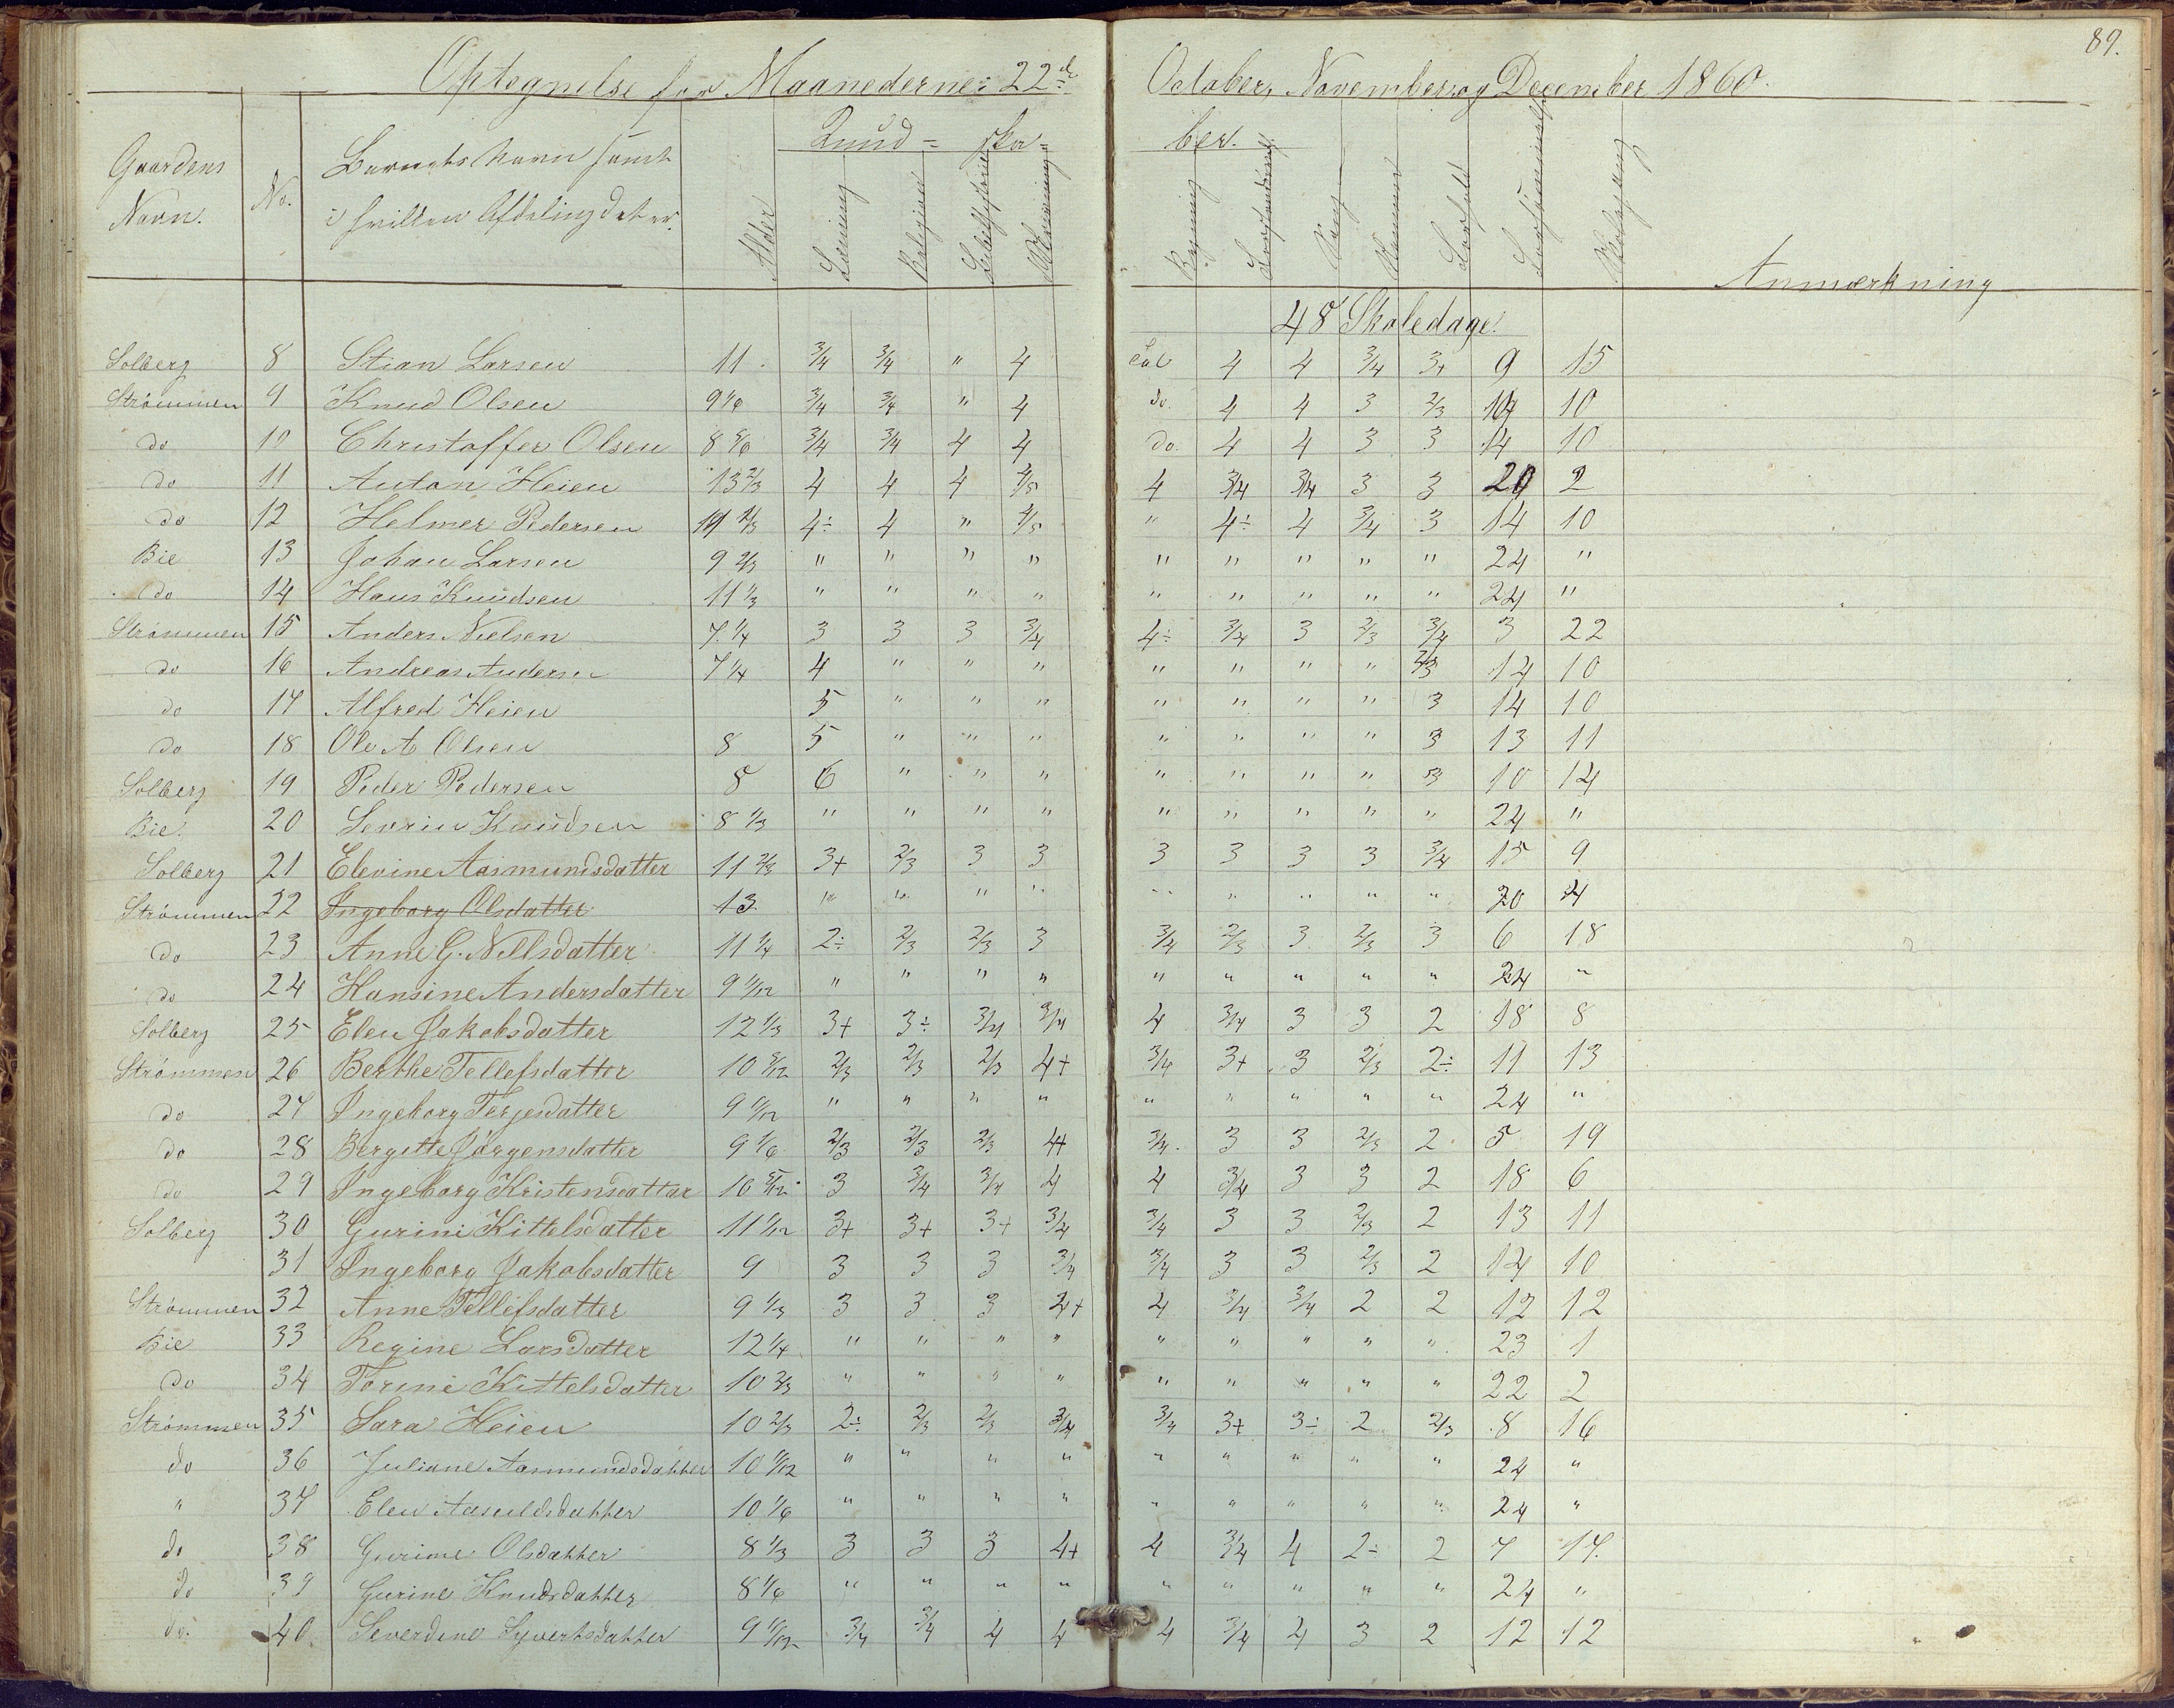 89.
Optegnelse for Maanederne: 22de October, November og December 1860.
Gaardens Navn. No. Barnets Navn samt i hvilken Afdeling det er. Alder Kund- ska- ber.
Læsning Religion Skrivning Regning Sang Anmærkning
48 Skoledage.
Solberg 8 Stian Larsen 11 3/4 3/4 " 4 4 4 3/4 3+ 9 15
Strömmen 9 Knud Olsen 9 1/6 3/4 3/4 " 4 do. 4 4 3 2/3 14 10
do 10 Christoffer Olsen 8 5/6 3/4 3/4 4 4 do. 4 4 3 3 14 10
do 11 Anton Heien 13 2/3 4 4 4 4/5 4 3/4 3/4 3 3 20 2
do 12 Helmer Pedersen 11 2/3 4÷ 4 " 4/5 " 4÷ 4 3/4 3 14 10
Bie 13 Johan Larsen 9 2/3 " " " " " " " " " 24 "
do 14 Hans Knudsen 11 1/3 " " " " " " " " " 24 "
Strömmen 15 Anders Nielsen 7 1/4 3 3 3 3/4 4÷ 3/4 3 2/3 3/4 3 22
do 16 Andreas Andersen 7 1/4 4 " " " " " " " 2/3 14 10
do 17 Alfred Heien 5 " " " " " " " 3 14 10
do 18 Ole A Olsen 8 5 " " " " " " " 3 13 11
Solberg 19 Peder Pedersen 8 6 " " " " " " " 3 10 14
Bie. 20 Sevrin Knudsen 8 1/3 " " " " " " " " " 24 "
Solberg 21 Elevine Aasmundsdatter 11 2/3 3+ 2/3 3 3 3 3 3 3 3/4 15 9
Strömmen 22 Ingeborg Olsdatter 13 " " " " " " " " " 20 4
do 23 Anne G. Nilsdatter 11 1/4 2÷ 2/3 2/3 3 3/4 2/3 3 2/3 3 6 18
do 24 Hansine Andersdatter 9 1/12 " " " " " " " " " 24 "
Solberg 25 Elen Jakobsdatter 12 1/3 3+ 3÷ 3/4 3/4 4 3/4 3 3 2 18 8
Strömmen 26 Berthe Tellefsdatter 10 5/12 2/3 2/3 2/3 4+ 3/4 3+ 3 2/3 2÷ 11 13
do 27 Ingeborg Terjesdatter 9 1/12 " " " " " " " " " 24 "
do 28 Bergitte Jörgensdatter 9 1/6 2/3 2/3 2/3 4+ 3/4 3 3 2/3 2 5 19
do 29 Ingeborg Kristensdatter 10 5/12 3 3/4 3/4 4 4 3/4 3 3 2 18 6
Solberg 30 Gurine Kittelsdatter 11 1/12 3+ 3+ 3+ 3/4 3/4 3 3 2/3 2 13 11
31 Ingeborg Jakobsdatter 9 3 3 3 3/4 3/4 3 3 2/3 2 14 10
Strömmen 32 Anne Tellefsdatter 9 1/3 3 3 3 4+ 4 3/4 3/4 2 2 12 12
Bie 33 Regine Larsdatter 12 1/4 " " " " " " " " " 23 1
do 34 Torine Kittelsdatter 10 2/3 " " " " " " " " " 22 2
Strömmen 35 Sara Heien 10 2/3 2÷ 2/3 2/3 3/4 3/4 3+ 3÷ 2 2/3 8 16
do 36 Juliane Aasmundsdatter 10 1/12 " " " " " " " " " 24 "
" 37 Elen Aasuldsdatter 10 1/6 " " " " " " " " " 24 "
do 38 Gurine Olsdatter 8 1/3 3 3 3 4+ 4 3/4 4 2÷ 2 7 17.
do 39 Gurine Knudsdatter 8 1/6 " " " " " " " " " 24 "
do. 40 Severdine Syvertsdatter 9 1/12 3/4 3/4 4 4 4 3/4 4 3 2 12 12